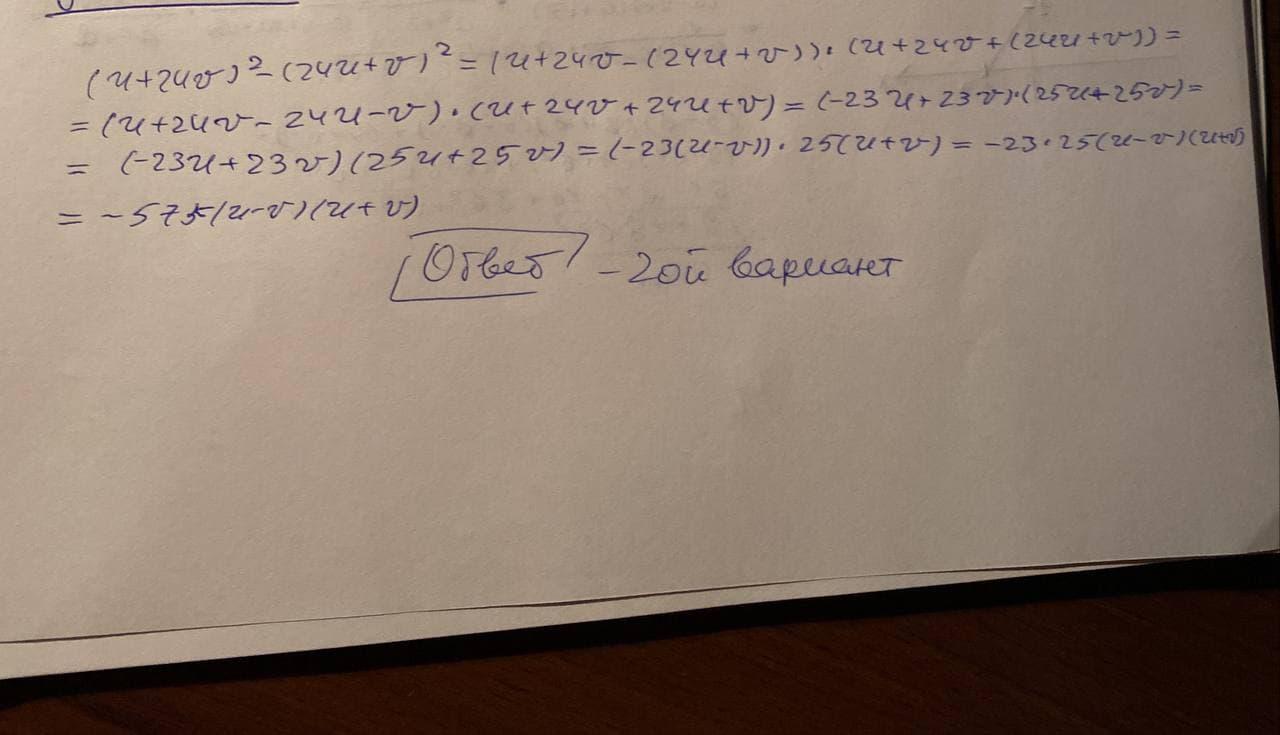 (u+24v)²-(24u+v)²=(u+24v-(24u+v))·(u+24v+(24u+v))=
=(u+24v-24u-v)·(u+24v+24u+v)=(-23u+23v)·(25u+25v)=
= (-23u+23v)(25u+25v)=(-23(u-v))·25(u+v)=-23·25(u-v)(u+v)
= -575(u-v)(u+v)
Ответ -2ой вариант